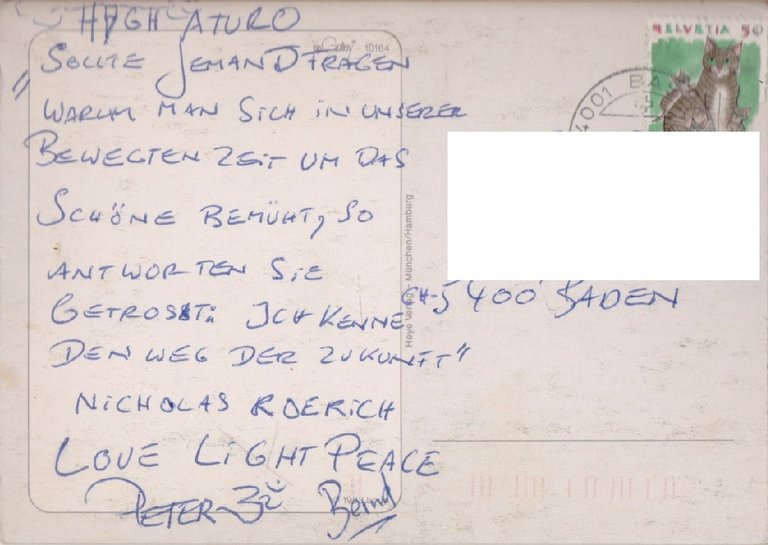 HAGH ATURO
"SOLLTE JEMAND FRAGEN
WARUM MAN SICH IN UNSERER
BEWEGTEN ZEIT UM DAS
SCHÖNE BEMÜHT, SO
ANTWORTEN SIE
GETROST: ICH KENNE
DEN WEG DER ZUKUNFT"
NICHOLAS ROERICH
LOVE LIGHT PEACE
PETER Bernd
10164
Heye Verlag München/Hamburg
HELVETIA 50
4001 BA
CH-5400 BADEN